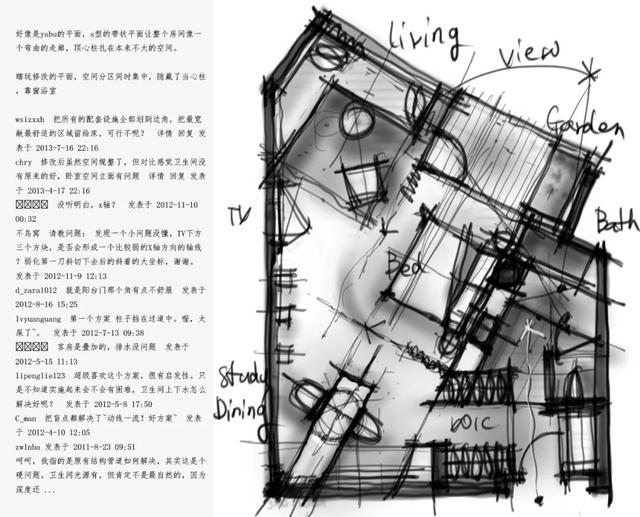 好像是yabu的平面，s型的带状平面让整个房间像一
个弯曲的走廊，顶心柱扎在本来不大的空间。
瞎玩修改的平面，空间分区同时集中，隐藏了当心柱
，靠窗浴室
wsizxxh 把所有的配套设施全部划到边角，把最宽
敞最舒适的区域留给床，可行不呢？ 详情 回复 发
表于 2013-7-16 22:16
chry 修改后虽然空间规整了，但对比感觉卫生间没
有原来的好，卧室空间立面有问题 详情 回复 发表
于 2013-4-17 22:16
没听明白，x轴？ 发表于 2012-11-10
00:32
不鸟窝 请教问题： 发现一个小问题没懂，TV下方
三个方块，是否会形成一个比较弱的X轴方向的轴线
？弱化第一刀斜切下去后的斜着的大坐标，谢谢。
发表于 2012-11-9 12:13
d_zara1012 就是阳台门那个角有点不舒服 发表于
2012-8-16 15:25
lvyuanguang 第一个方案 柱子挡在过道中。喔，大
屎了~。 发表于 2012-7-13 09:38
客房是叠加的，排水没问题 发表于
2012-5-15 11:13
lipenglie123 超级喜欢这个方案，很有启发性。只
是不知道实施起来会不会有困难，卫生间上下水怎么
解决好呢？ 发表于 2012-5-8 17:50
C_man 把盲点都解决了~动线一流！好方案~ 发表
于 2012-4-10 12:05
zwlnba 发表于 2011-8-23 09:51
呵呵，我指的是原有结构管道如何解决，其实这是个
硬问题。卫生间光源有，但肯定不是最自然的，因为
深度还 ...
living
view
Garden
TV
Bath
Bed
Study
Dining